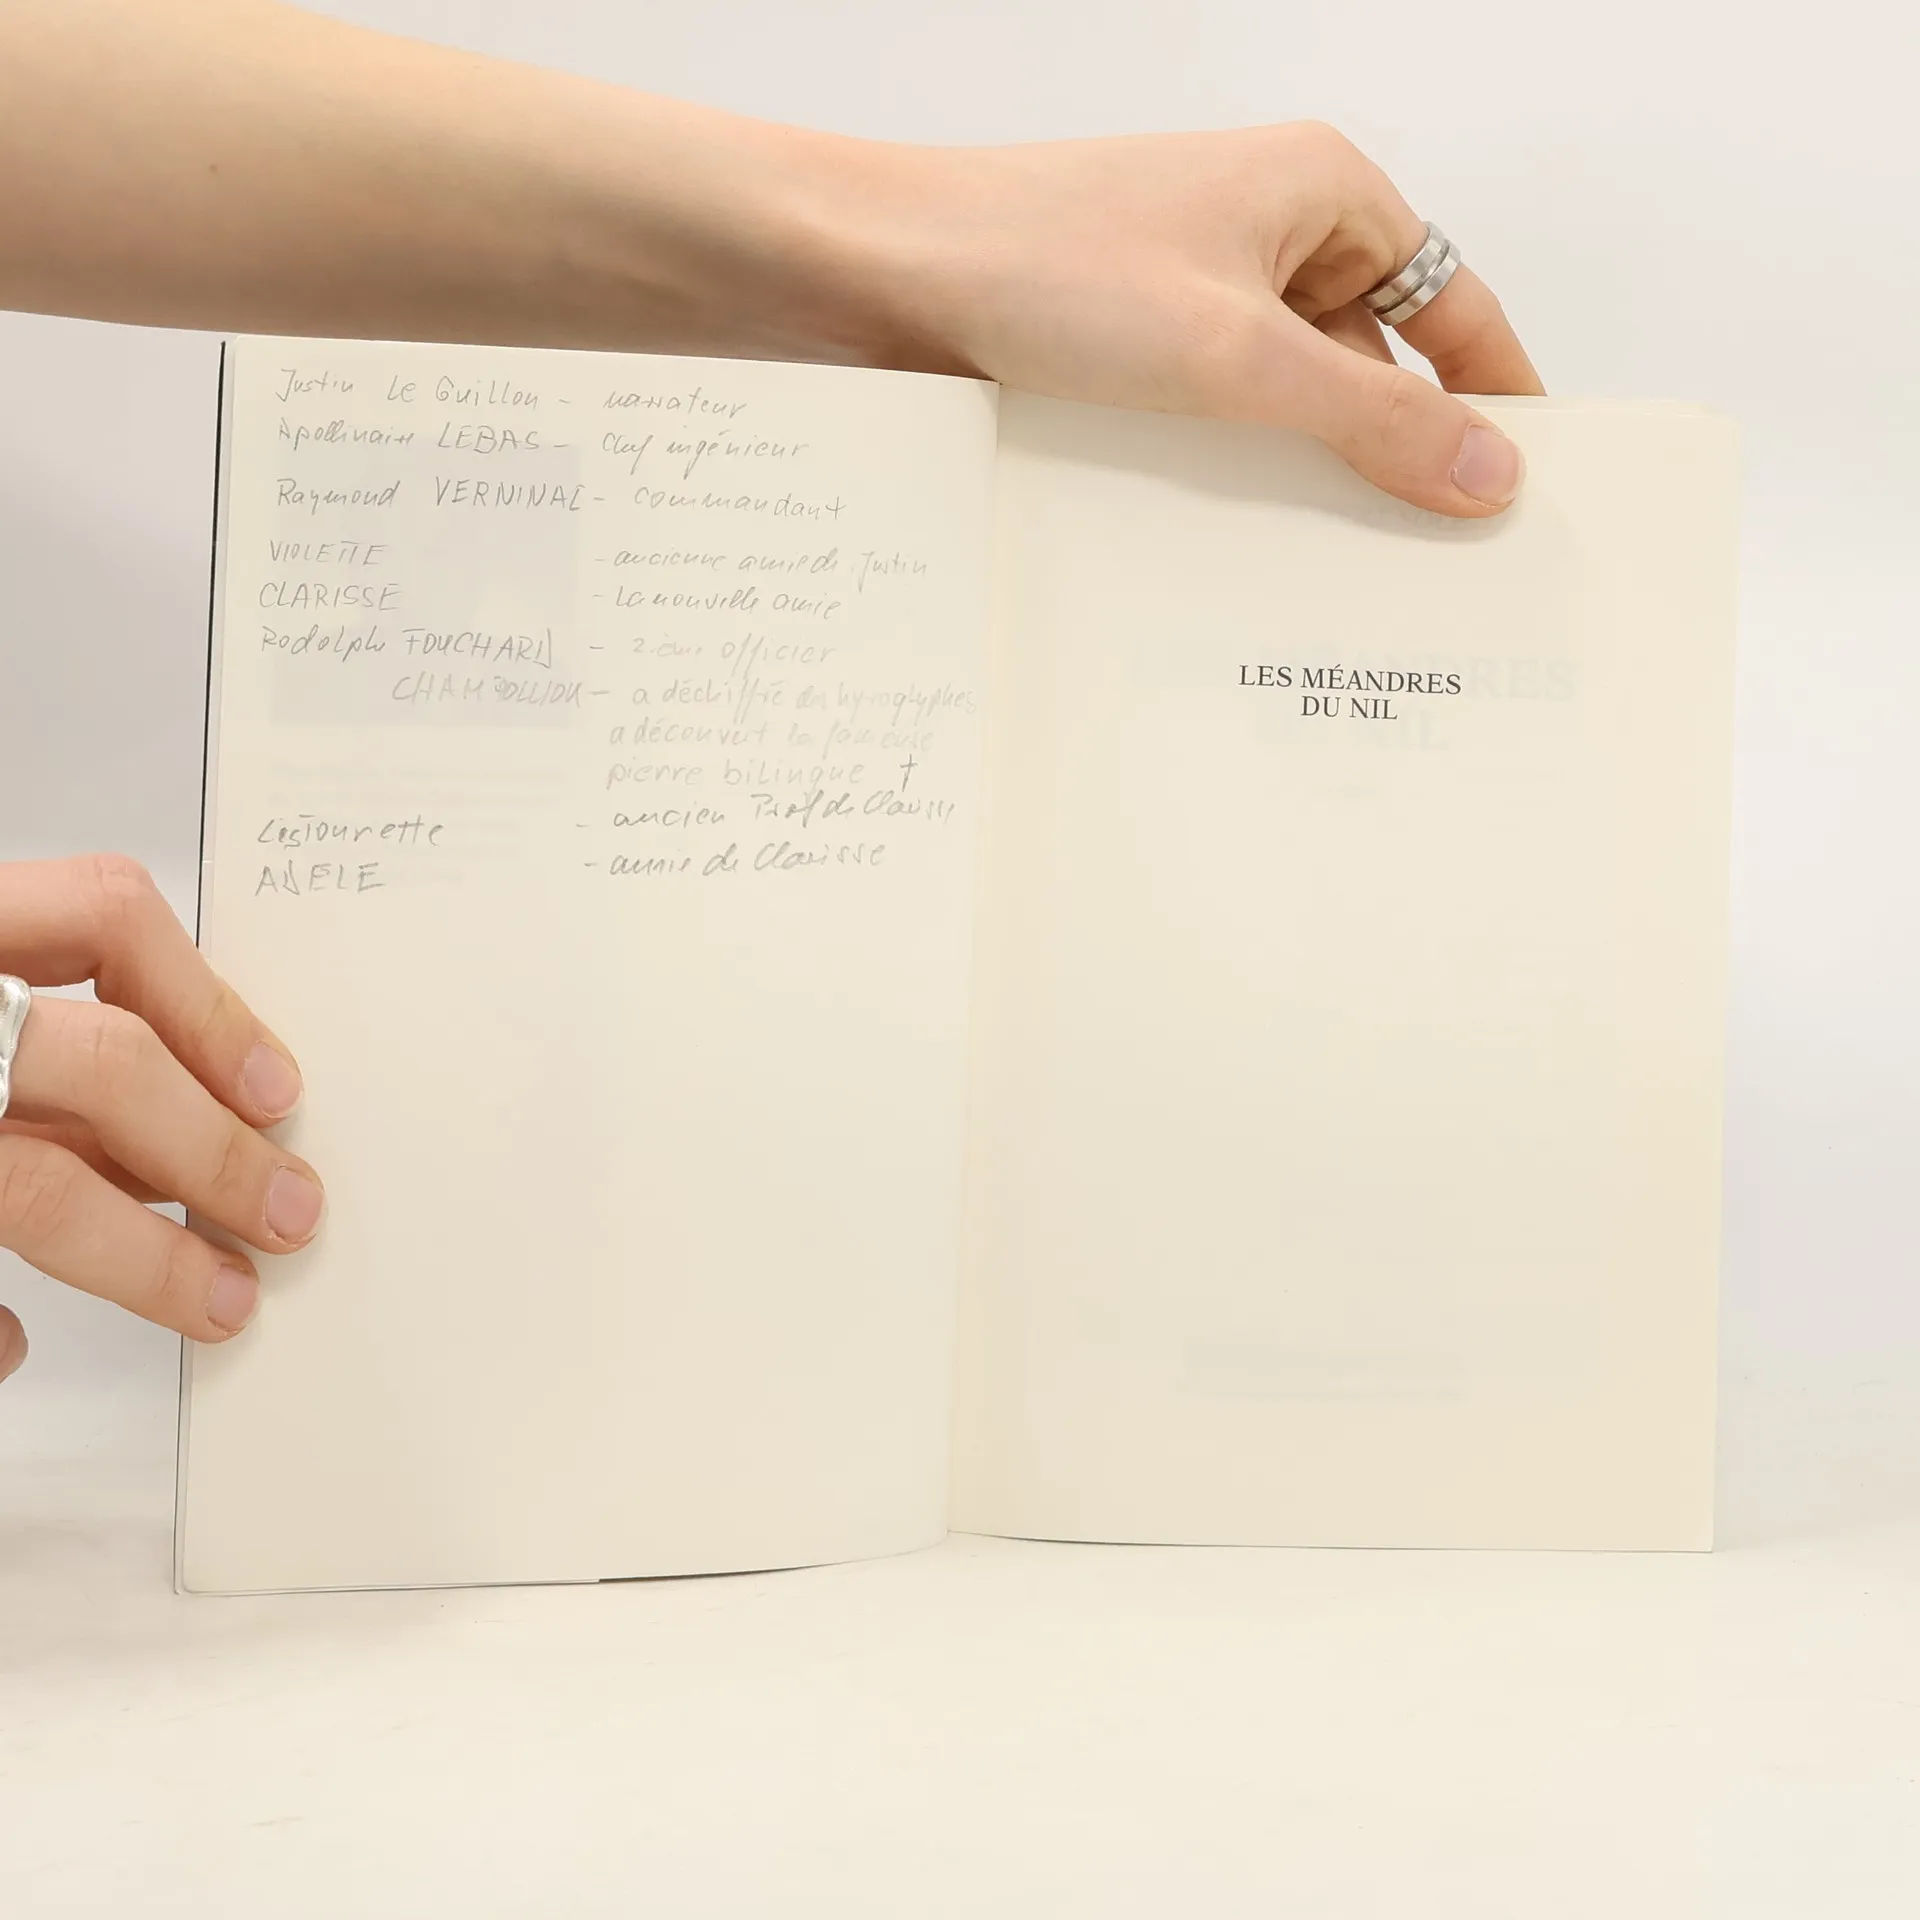 Justin Le Guillon - narrateur
Apollinaire LEBAS - chef ingénieur
Raymond VERNINAC - commandant
VIOLETTE - ancienne amie de Justin
CLARISSE - la nouvelle amie
Rodolphe FOUCHARD - 2ième officier
CHAMPOLLION - a déchiffré des hyroglyphes
a découvert la fameuse
pierre bilingue †
Lestourette - ancien Prof de Clarisse
ADELE - amie de Clarisse
LES MÉANDRES
DU NIL